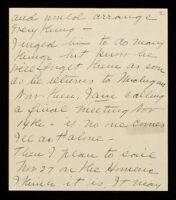 and would arrange
everything —
I urged him to do many
things but know he
will forget them as soon
as he returns to Michigan
Now then, I am calling
a final meeting Nov
14th — if no one comes
I'll act alone —
Then I plan to sail
Nov 27 on the America
I think it is, It may